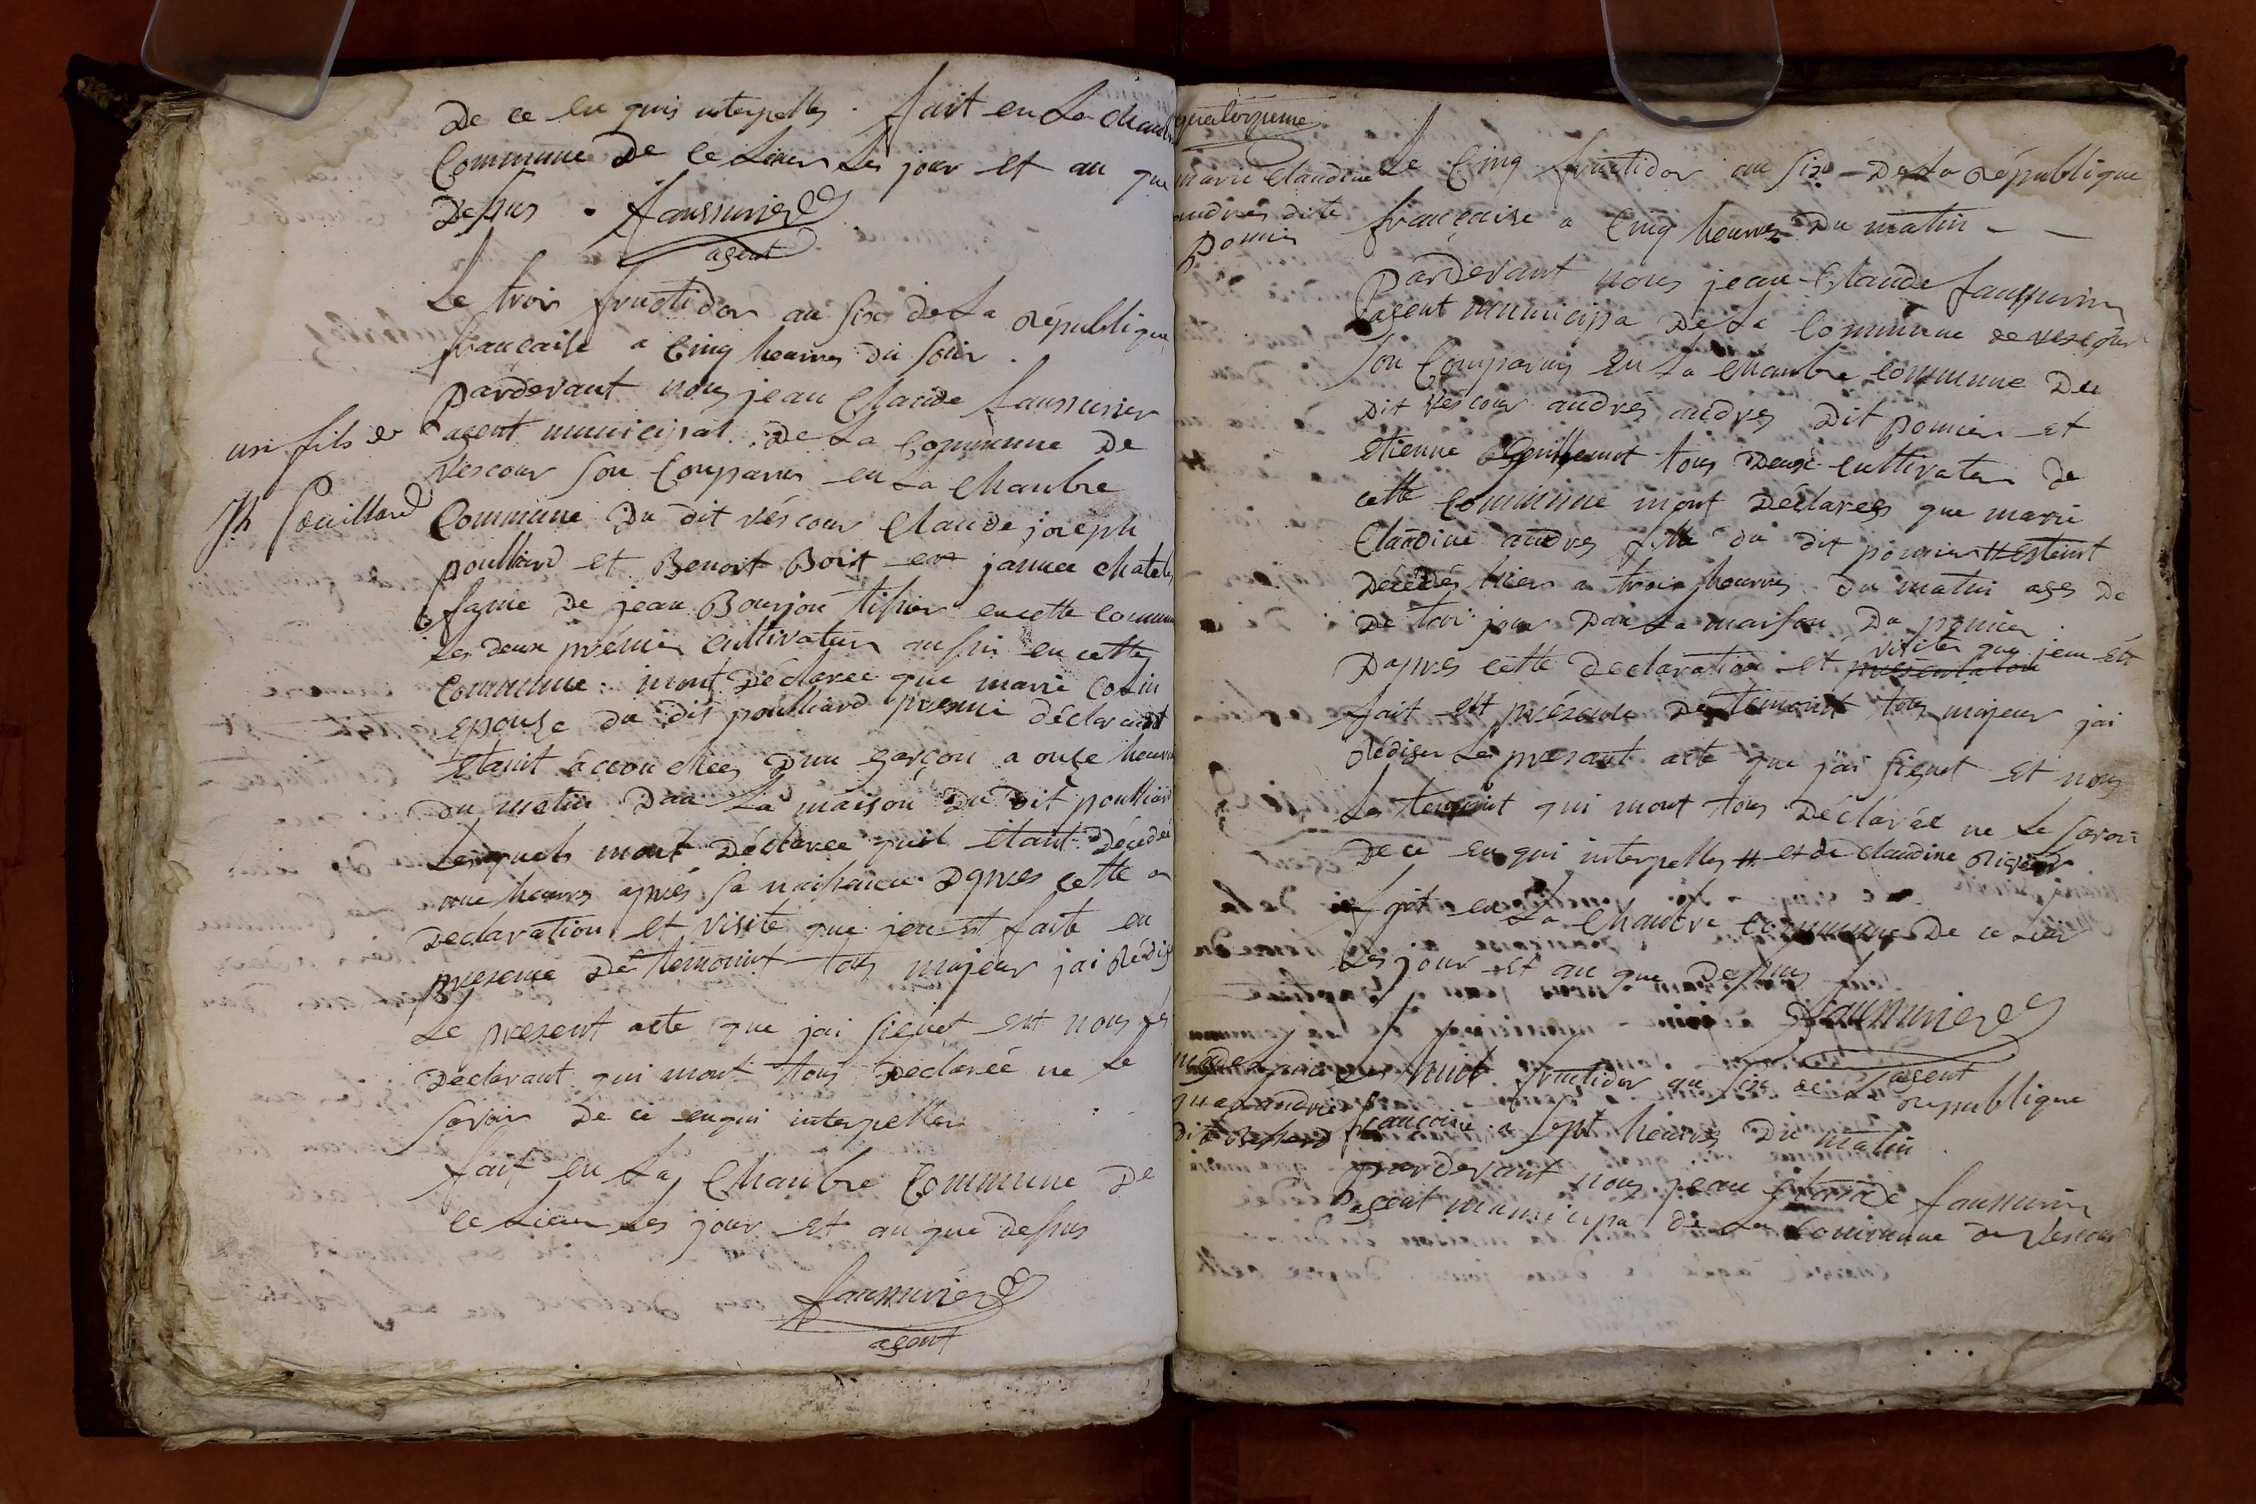 De ce en quis interpelles . fait en La chamb
Commune De ce Lieu Les jour et an que
Dessus . faussurier
agent
Le trois fructidor an six de La république
francaise a Cinq heures du soir .
pardevant nous jean Claude faussurier
agent municipal De La Commune De
un fils de
Vescour son Comparus en La Chambre
Jh Pouillard
Commune du dit vescour Claude joseph
poulliard et Benoit Boit et jannee chatel
fame de jean Bourjon tissier en cette commu
Les deux prémier cultivateur aussi en cette
Commune . mont Déclaree que marie Colin
Epouse du dit poulliard premie déclarant
Etanit accouchees dun garçon a onse heures
du matin Dan La maison du dit poulliard
Lesquels mont Déclaree quil etant Décedé
une heures aprés sa naissance Dapres cette
Declaration et visite que jen est faite en
presence De temoint tous majeur jai Rédis
Le present acte que jai signet est nous les
Declarant qui mont tous Declareé ne le
savoir De ce enqui interpelles
fait en La Chambre Commune De
ce Lieu Les jour et an que dessus
faussurier
agent
quatorzieme
marie Claudine
andres dite
pomié
Le Cinq fructidor an six De La république
française a Cinq heures Du matin
Pardevant nous jean Claude faussurier
agent municipa De La Commune de vescour
son Comparus En La Chambre Commune Du
Dit vescour andres andres Dit pomier et
etienne Guillemot tous deux cultivateu de
cette Commune mont Déclarees que marie
Claudine andres fille du dit pomier # Esteint
Décedés hier a trois heures du matin ages De
De troi jour Dan La maison Du pomier
Dapres cette Declaration et presentation visiter que jenn est
fait est présence De temoint tous majeur jai
Rédiser Le presant acte que jai signet Et nous
Les temoint qui mont tous Déclarée ne Le savoir
De ce en qui interpelles # et de Claudine Rigaud
fait en La Chambre Commune De ce Lieu
Les jour et an que Dessus
faussurier
agent
Le huit fructidor an six de La republique
que andres
dit Bessard
française a sept heures Du matin
pardevant nous jean Claude faussurier
agent municipa de La Commune De Vescour